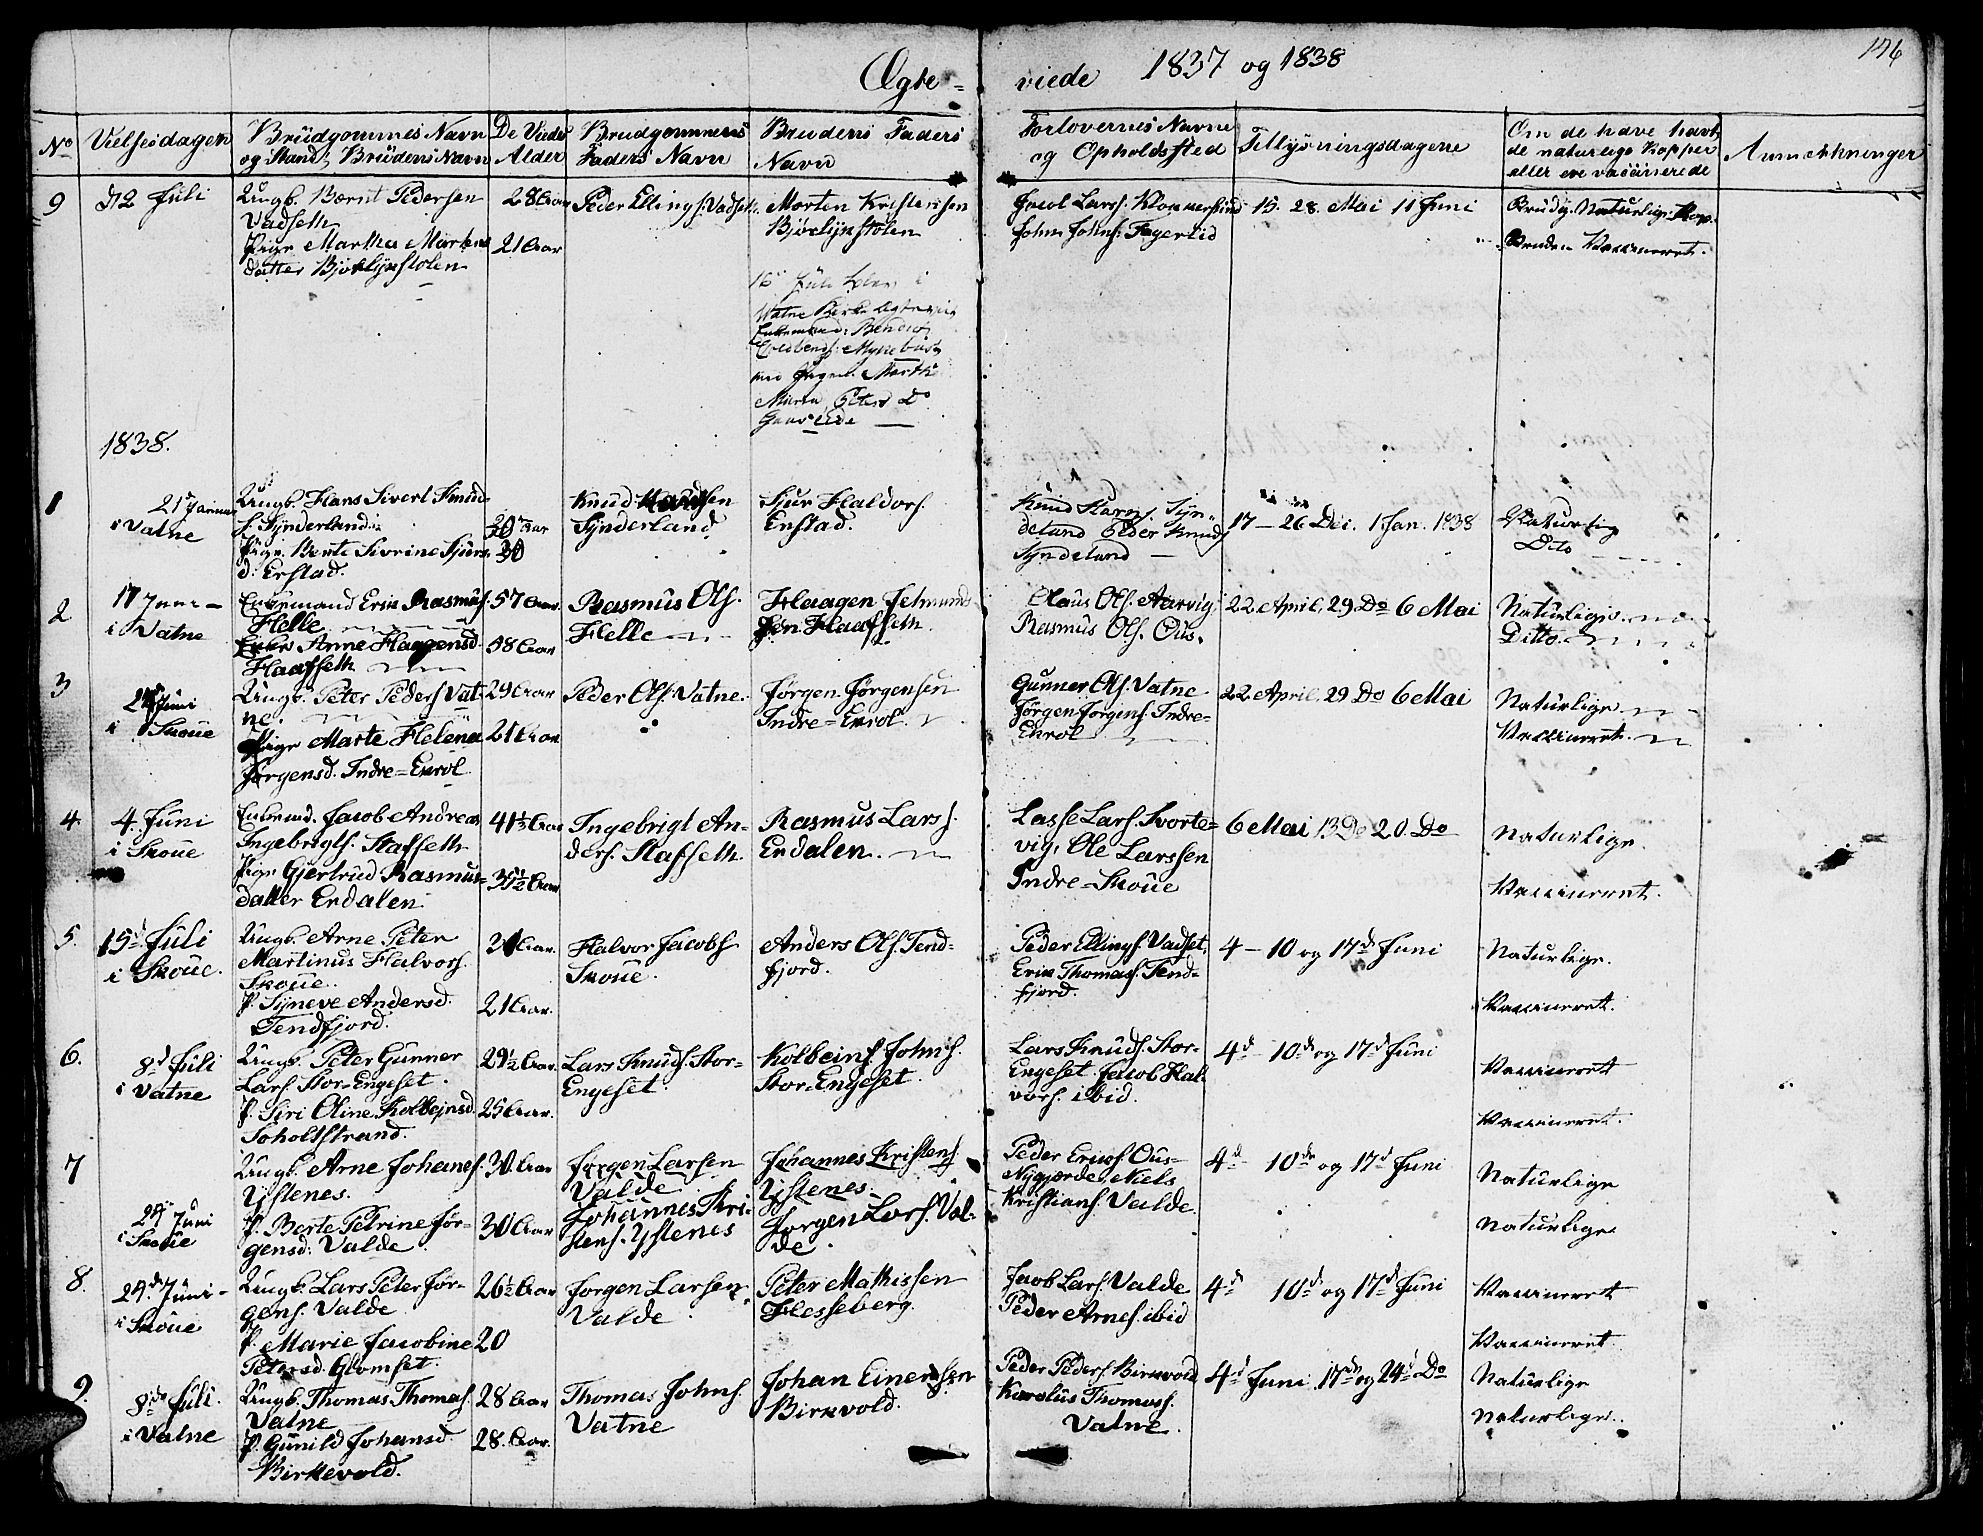 Ægte= viede 1837 og 1838
176
No
Vielsesdagen
Brüdgommes Navn
og Stand, Brüdens Navn
De Viedes
Alder
Brudgommens
Faders Navn
Brudens Faders
Navn
Forlovernes Navne
og Opholdssted
Tillysningsdagene
Om de have havt
de naturlige Kopper
eller ere vaccinerede
Anmærkninger
9
d 2 Juli
Ungk. Bernt Pedersen
Vadseth
Pige Martha Martens
datter Bjørlijkstolen
28 Aar
21 Aar
Peder Ellings. Vadset
Morten Kristensen
Bjørlijkstolen
Jacob Lars. Klommerlund
John Johns. Fagerlid
15. 28. Mai 11 Juni
Brudg. Naturlige Kop.
Bruden Vaccineret.
Juli blev i
Vatne Kirke
Enkemand
Myklebust
med Marth
Peters D.
1838.
1
21 Januar
i Vatne
Ungk. Hans Sivert Knud
s. Sÿnderland
Pige. Berte Sivrine Sjurs
d. Erstad.
30 Aar
30
Knud Knudsen
Sÿnderland
Sjur Haldors.
Erstad.
Knud Syn-
deland Peder Knuds
Syndeland
17 - 26 Dec. 1 Jan. 1838
Naturlig
Dito
2
17 Juni
i Vatne
Enkemand Erik Rasmus.
Helle
Enke Anne Haagensd.
Haafseth
57 Aar.
58 Aar
Rasmus Ols.
Helle
Haagen Jetmund
sen Haafseth
Claus Ols. Aarvig
Rasmus Ols. Ous.
22. April, 29. Do 6 Mai
Naturlige
Ditto
3
24 Juni
i Skoue
Ungk. Peter Peders. Vat-
ne.
Pige Marte Helena
Jørgensd. Indre=Ekrol
29 Aar
21 Aar
Peder Ols. Vatne.
Jørgen Jørgensen
Indre=Ekrol.
Gunner Ols. Vatne
Jørgen Jørgens. Indre=
Ekrol
22. April, 29 Do 6 Mai
Naturlige
Vaccineret.
4.
4. Juni
i Skoue
Enkemd. Jacob Andreas
Ingebrigts. Stafseth
Pige Gjertrud Rasmus=
datter Erdalen
41½ Aar
35½ Aar
Ingebrigt An-
ders. Stafseth
Rasmus Lars.
Erdalen.
Lasse Lars. Svorte=
vig, Ole Larssen
Indre=Skoue
6 Mai 13 Do 20. Do
Naturlige.
Vaccineret.
5.
15d Juli
i Skoue.
Ungk. Arne Peter
Martinus Halvors.
Skoue.
P. Syneve Andersd.
Tendfjord.
21 Aar.
Halvor Jacobs.
Skoue.
Anders Ols. Tend-
fjord.
Peder Ellings. Vadset.
Erik Thomas. Tend-
fjord.
4 - 10 og 17d Juni
Naturlige.
Vaccineret.
6.
8d Juli
i Vatne
Ungk. Peter Gunner
Lars. Stor-Engeset.
P. Siri Oline Kolbejnsd.
Soholtstrand.
29½ Aar.
25 Aar.
Lars Knuds. Stor-
Engeset.
Kolbein Johns.
Stor-Engeset.
Lars Knuds. Stor-
Engeset. Jacob Hal-
vors. ibid.
4d 10de og 17d Juni
Vaccineret
Vaccineret.
7
24 Juni
i Skoue
Ungk. Arne Johanes.
Ystenes.
P. Berte Petrine Jør-
gensd. Valde
30 Aar
30 Aar
Jørgen Larsen
Valde
Johannes Kri-
stens. Ystenes
Johannes Kristens
Ystenes
Jorgen Lars. Val-
de
Peder Eriks. Ous-
Nygjærde. Niels
Kristians. Valde.
4d 10de og 17d Juni
Naturlige
Naturlige
8.
24d Juni
i Skoue
Ungk. Lars Peter Jør-
gens. Valde
P. Marie Jacobine
Petersd. Glomset.
26½ Aar
20
Jorgen Larsen
Valde
Peter Mathissen
Flesseberg
Jacob Lars. Valde
Peder Arnes. ibid
4d 10d og 17d Juni
Vaccineret
Vaccineret.
9.
8de Juli.
i Vatne
Ungk. Thomas Thomas.
Vatne
P. Gunild Johansd.
Birkevold.
28 Aar
28. Aar.
Thomas Johns.
Vatne
Johan Einersen
Birkvold.
Peder Peders. Birkvold
Karolus Thomas.
Vatne
4d Juni 17de og 24d Do
Naturlige
Naturlige.